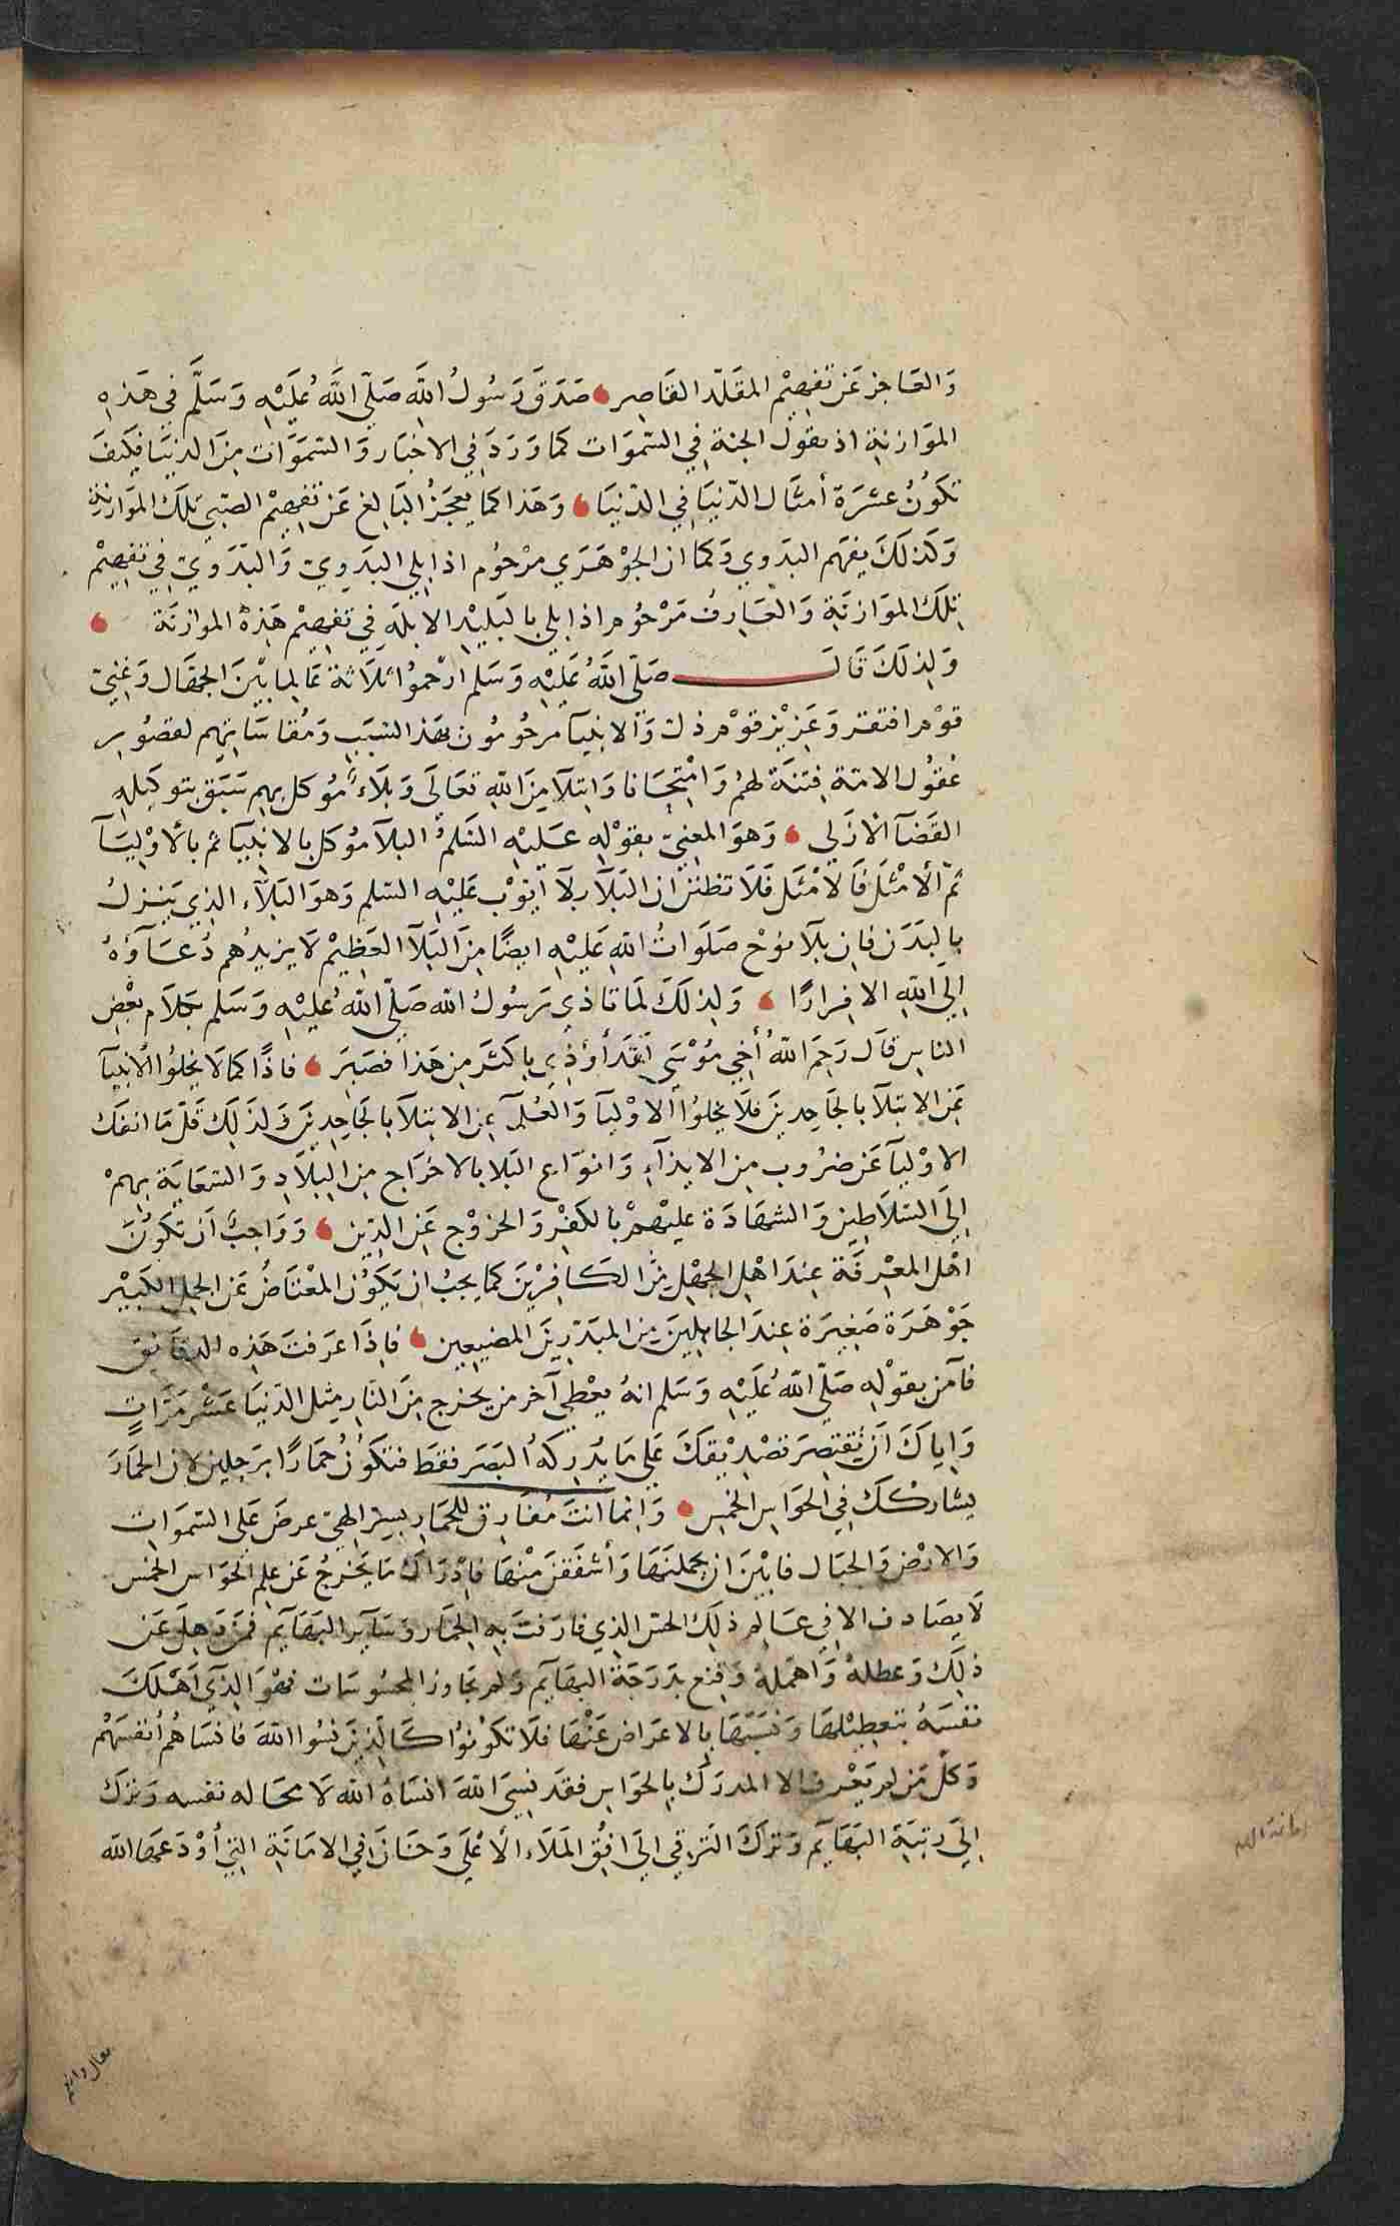 وَالعَاجز عَن تفهِيْم المقَلّد القَاصِر ، صَدَقَ رَسُولُ اللَّهِ صَلّي اللَّهُ عَلَيْهِ وَسَلَّم فِي هَذِهِ
الموَازنةِ اذ يقول الجنة فِي السّموَات كما وَرَدَ فِي الاخبَار وَالسّمَوَات مِنَ الدنيَا فكَيفَ
تكَوُنُ عشَرَة أمثَال الدّنيَا فِي الدّنيَا ، وَهَذا كمَا يَعجَزُ البَالِغ عَن تَفهِيْم الصّبِيّ تلكَ الموَازنةِ
وَكَذلَكَ يفهَم البدَوي وَكما ان الجوْهَرَي مرْحُوم اذا بلي البدَوِيّ وَالبدَوِيّ فِي تفهِيْم
تِلكَ الموَازنَةِ وَالعَارفُ مَرْحُوم اذا بلي بالبَلِيْد الابْلَهِ فِي تفهِيْم هَذِهْ الموازنَة ،
وَلِذلَكَ قَالَ صَلّي اللَّهُ عَلَيْهِ وَسَلم ارْحمُوا ثلَاَثة عَالِما بيْنَ الجهّال وَغَنِيّ
قوْم افتقر وَعَزِيْز قوْم ذل وَالانبيَآ مرحُومُون بهَذ السّبَبِ وَمُقاسَاتِهِم لقصُور
عُقوُل الامّة فِتنَة لهُم وَامْتِحَانا وَابتِلَآ مِنَ اللهِ تعَالَي وَبلَاء مُوَكل بِهِم سَبَق بتوكيلهِ
القَضَآ الْازَلي ، وَهوَ المعنِيّ بقوْلهِ عَليْهِ السَّلمُ البلآ مُوكل بالانبيَآ ثم بالأوْليَآ
ثمّ الأمْثَل فَالامْثَل فَلَا تظنن ان البَلآء بلآ أيّوْب عَلَيْهِ السّلم وَهوَ البَلآء الذِي يَنزلُ
بالبَدَن فان بلآ نوْح صَلَوَاتُ اللهِ عَلَيْهِ ايضًا مِنَ البَلآ العَظِيْم لَا يزيدُهم دُعَآؤهُ
إلَي اللهِ الا فِرارًا ، وَلِذلَكَ لَمَا تاذى رَسُولُ الله صَلّي اللهُ عَلَيْهِ وَسَلم بكَلَام بعْضِ
الناسِ قال رَحِمَ اللهُ أخِي مُوْسَي لَقَدْ أُوْذِي باكثرَ مِن هَذا فصَبَرَ ، فاذًا كما لَا يخلُوا الْانبيَآ
عَن الابتلَآ بالجَاحِدينَ فَلَا يخلُوا الاوْليَآ وَالعُلمَآ عن الابتلَآ بالجَاحِدِينَ وَلذَلِكَ قَلّ مَا انفكَ
الاوْليَآ عَن ضرُوب مِن الايذآءِ وَانوَاع البَلا بالاخرَاج مِن البِلَادِ وَالسّعَايَة بِهِمْ
إلَي السّلَاطِين وَالشهَادَة عَليْهِمْ بالكفْر وَالخروْج عَن الدّين ، وَوَاجبٌ أن تكَونَ
اهْل المعْرِفَة عِندَ اهْلِ الجهْلِ مِنَ الكَافِرِيْنَ كما يجبُ ان يَكوُن المعْتَاضُ عَن الجملِ الكَبِيْر
جَوْهَرَة صَغِيرَة عِندَ الجاهلِيْنَ مِن المبَذّرِينَ المضيعِين ، فاذَا عَرَفتَ هَذِه الدقايق
فآمن بقوْلهِ صَلّي اللهُ عَلَيْهِ وَسَلم انهُ يعْطِي آخر من يخرج مِنَ النّار مِثل الدّنيَا عَشْر مَرَّاتٍ
وَايَاكَ اَنْ تقتصِرَ تصْدِيْقكَ عَلي مَا يُدْركهُ البَصَر فقط فتكوُنُ حمَارًا برَجلين لان الحمَارَ
يشاركَكَ فِي الحوَاس الخمسِ ، وَانما انتَ مُفَارق للحمَار بسِرّ الَهِيّ عرضَ عَلي السّموَات
وَالارْضِ وَالجبَال فابَيْنَ ان يحملنَهَا وَأشفَقنَ مْنهَا فادْرَاكُ مَا يَخرجُ عَن عِلم الحوَاس الخمس
لَا يصَادف الا فِي عَالم ذلِكَ السّر الذِي فارَقتَ بهِ الحمَار وَسَآير البهَايم فمَن ذَهلَ عَن
ذلِكَ وَعطلهُ وَاهمَلهُ وَقنع بدَرَجَة البهَآيم وَلم يجاوز المحسُوسَات فهُوَ الذِّي أهْلَكَ
نفسَهُ بتعطِيْلهَا وَنسيَهَا بالاعرَاض عَنْهَا فلَا تكوْنوُا كَالّذِينَ نسُوا اللهَ فانسَاهُم أنفسَهُم
وَكلّ مَن لم يعْرف الا المدرَك بالحوَاس فقد نسِيَ اللهَ انسَاهُ الله لَا محَاله نفسه وَنزلَ
إلَي رتبَةِ البهَآيم وَتركَ التّرقي إلَي افُقِ المَلَاء الْاعْلي وَخَانَ فِي الامَانَةِ التِيّ أوْدَعهَا الله
امانة الله